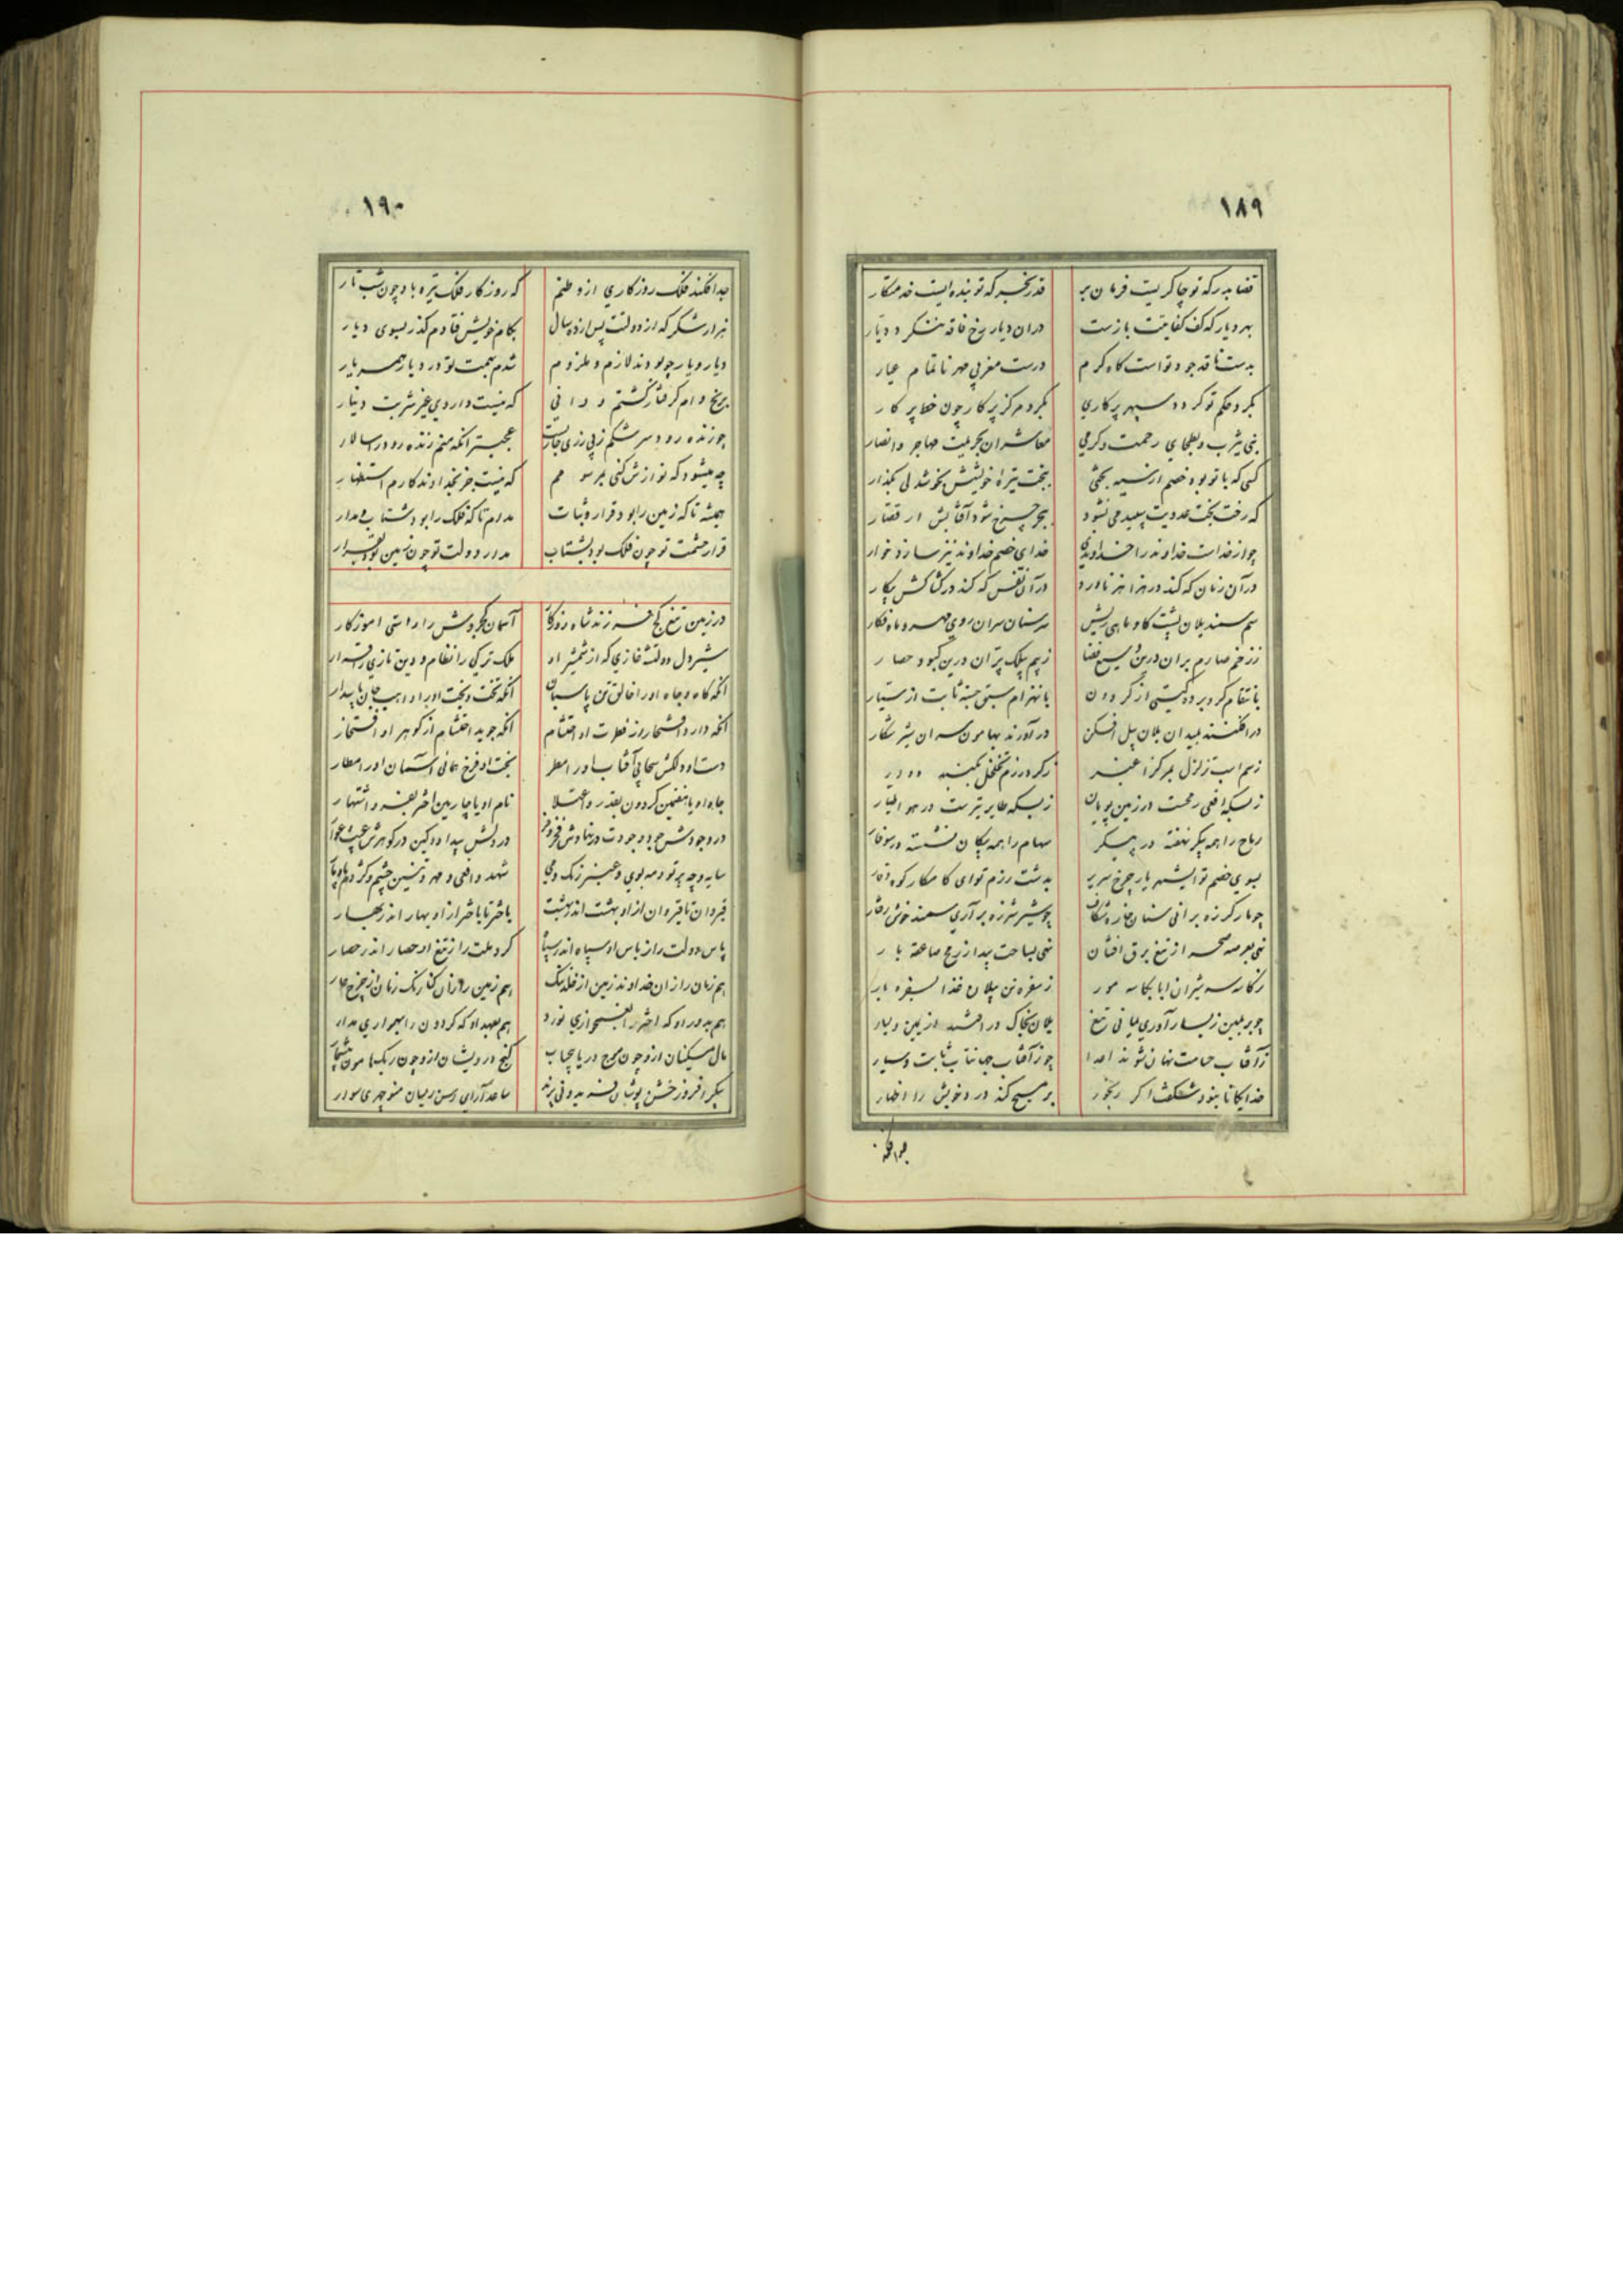 ١٨٩
قضا بدر که تو چاکریت فرمان بر قدر بخبر که تو بنده ایست خدمتکار
بهر دیار که کف کفایتت بازست دران دیار رخ فاقه ننگرد دیار
بدست ناقد جود تو است کاه کرم درست مغربی مهر ناتمام عیار
بکرد حکم تو کردد سپهر پرکاری بکرد مرکز پرکار چون خط پرکار
نبی یثرب و بطحای رحمت و کرمی معاشران حریمت مهاجر و انصار
کسی که با تو بود خصم از نسیه بختی ببخت تیره خویشش بخوشدلی بگذار
که رخت بخت عدویت سپید می نشود بچرخ شود آفتابش ار قصار
چو از خدات خداوند را خداوندی خدای خصم خداوند نیز سازد خوار
در آن زمان که کند در هزاهز ناورد در آن نفس که کند در کشاکش پیکار
سم سمند یلان پشت کاو و ماهی ریش سر سنان سران روی مهر و ماه فکار
ز زخم صارم بران درین وسیع فضا ز بیم بیلک پران درین کبود حصار
بانتقام کرو برده کیتی از کردون بانهزام سبق جسته ثابت از سیار
در افکنند بمیدان یلان پیل افکن در آورند بهامون سران شیر شکار
ز سم اسب تزلزل بمرکز اغبر ز کرد رزم تخلخل بکنبد دوار
ز بسکه افعی رمحست در زمین پویان ز بسکه طایر تیرست در هوا طیار
رماح را همه پیکر نهفته در پیکر سهام را همه پیکان نشسته در سوفار
بسوی خصم تو ای شهریار چرخ سریر بدشت رزم تو ای کامکار کوه وقار
چو مار کرزه برانی سنان خاره شکاف چو شیر شرزه بر آری سمند خوش رفتار
نهی بعرصه سحر از تیغ برق افشان نهی بساحت بیدا ز رمح صاعقه بار
ز کاسه سر شیران ابا بکاسه مور ز سفره تن پیلان غذا بسفره مار
چو بر یمین ز یسار آوری یمانی تیغ یلان بخاک در افتند از یمین و یسار
ز آفتاب حسامت نهان شوند اعدا چو ز آفتاب جهانتاب ثابت و سیار
خدایکانا نبود شگفت اکر رنجور بر مسیح کند درد خویش را اظهار
جدا فکند
١٩٠
جدا فکند فلک روزکاری از وطنم که روزکار فلک تیره باد چون شب تار
هزار شکر که از دولتت پس از ده سال بکام خویش فتادم گذر بسوی دیار
دیار و یار چو بودند لازم و ملزوم شدم بهمت تو در دیار همسر یار
برنج وام کرفتار کشتم و دانی که نیست داروی غیر شربت دینار
چو زنده رود سرشکم ز بی زری جاریست عجبتر آنکه منم زنده رود را سالار
چه میشود که نوازش کنی بمرسومم که نیست جز بخداوند کارم استظهار
همیشه تا که زمین را بود قرار و ثبات مدام تا که فلک را بود شتاب و مدار
قرار حشمت تو چون فلک بود بشتاب مدار دولت تو چون زمین بود بقرار
در زمین تیغ کج فرزند شاه روزکار آسمان کجروش را راستی آموزکار
شیر دل دولتشه غازی که از شمشیر او ملک ترکی را نظام و دین تازی را قرار
آنکه کاه و جاه او را خالق تن پاسبان آنکه تخت و بخت او را واهب جان پایدار
آنکه دارد افتخار از فطرت او احتشام آنکه جوید احتشام از کوهر او افتخار
دست او دلکش سحابی آفتاب او را مطر بخت او فرخ همائی آسمان او را مطار
جاه او با هفتمین کردون بقدر و اعتلا نام او با چارمین اختر بفر و اشتهار
در وجودش جود و جودت در نهادش فخر و فر در دلش بیداد و کین در کوهرش عیب و عوار
سایه و چه پرتو و مه بوی و عنبر رنگ و می شهد و افعی و مهر و تنین چشم و کژدم باد و پا
قیروان تا قیروان از او بهشت اندر بهشت باختر تا باختر از او بهار اندر بهار
پاس دولت را ز باس او سپاه اندر سپاه کرد ملت را ز تیغ او حصار اندر حصار
هم زمان را زان خداوند زمین از خلد ننگ هم زمین را زان کنارنگ زمان از چرخ عار
هم بدور او که اختر را بفسخ ازی نورد هم بعهد او که کردون را بهمواری مدار
مال مسکینان ازو چون موج دریا بیحساب گنج درویشان ازو چون ریگ هامون بیشمار
پیکر افروز خشن پوشان فریدونی پرند ساعد آرای رسن ریسان منوچهری سوار